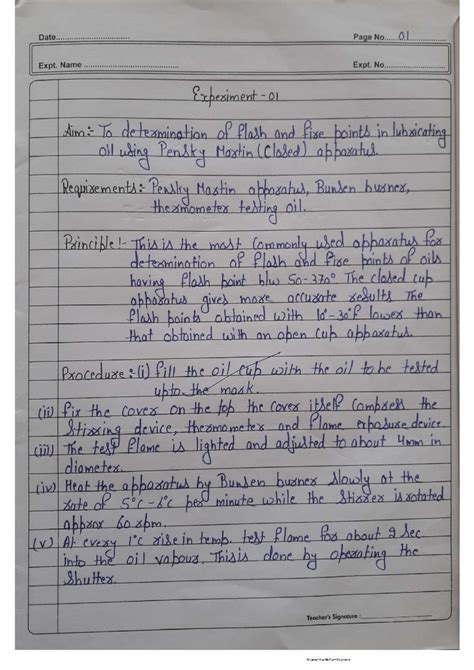 Date................................ Page No..... 01 .............
Expt. Name ................................ Expt. No.........................
Experiment - 01
Aim:- To determination of flash and fire points in lubricating
oil using Pensky Martin (Closed) apparatus.
Requirements:- Pensky Martin apparatus, Bunsen burner,
thermometer testing oil.
Principle:- This is the most commonly used apparatus for
determination of flash and fire points of oils
having flash point b/w 50-370° The closed cup
apparatus gives more accurate results The
flash points obtained with 10°-30°F lower than
that obtained with an open cup apparatus.
Procedure: (i) fill the oil cup with the oil to be tested
upto the mark.
(ii) fix the cover on the top the cover itself compress the
Stirring device, thermometer and flame exposure device.
(iii) The test flame is lighted and adjusted to about 4mm in
diameter.
(iv) Heat the apparatus by Bunsen burner slowly at the
rate of 5°c - 6°c per minute while the stirrer is rotated
approx 60 rpm.
(v) At every 1°c rise in temp. test flame for about 2 sec
into the oil vapour. This is done by operating the
shutter.
Teacher's Signature : ................................